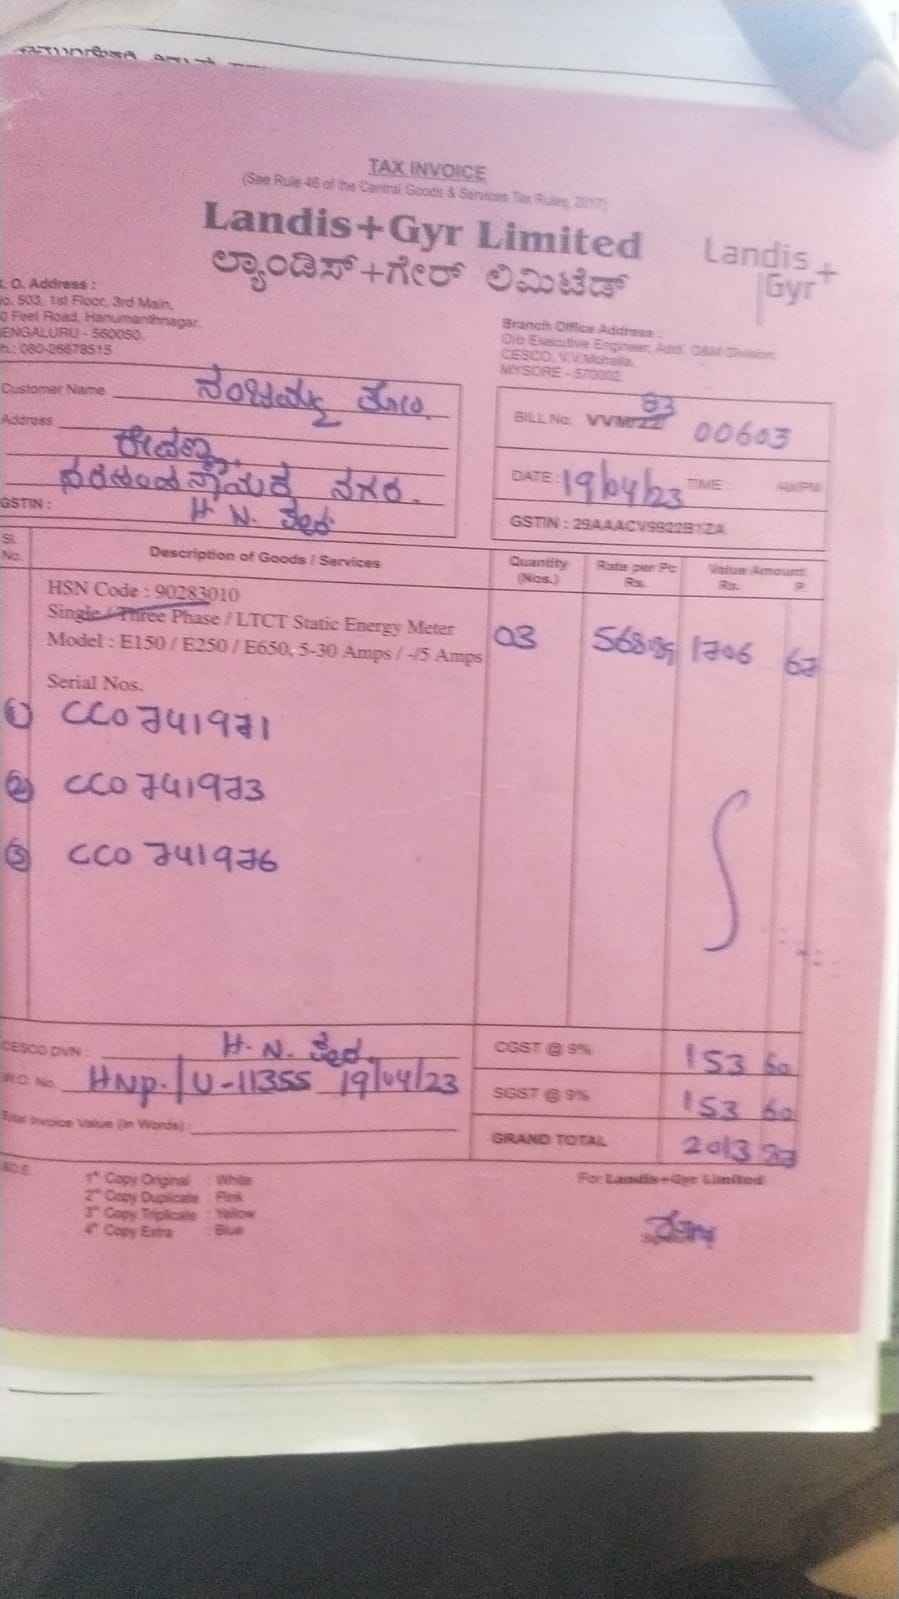 TAX INVOICE
(See Rule 46 of the Central Goods & Services Tax Rules, 2017)
Landis+Gyr Limited
ಲ್ಯಾಂಡಿಸ್+ಗೇರ್ ಲಿಮಿಟೆಡ್
Landis
Gyr+
. O. Address :
o. 503, 1st Floor, 3rd Main,
0 Feet Road, Hanumanthnagar,
ENGALURU - 560050.
h.: 080-26678515
Branch Office Address :
O/o Executive Engineer, Addl. O&M Division
CESCO, V.V.Mohalla,
MYSORE - 570002.
Customer Name
Address
ನಗರ.
GSTIN :
H. N.
BILL No. 23
00603
DATE : 19/04/23 TIME : AM/PM
GSTIN : 29AAACV9922B1ZA
Sl. No. Description of Goods / Services Quantity (Nos.) Rate per Pc Rs. Value Amount Rs. P.
HSN Code : 90283010
Single / Three Phase / LTCT Static Energy Meter
Model : E150 / E250 / E650, 5-30 Amps / -/5 Amps 03 568.89 1706 67
Serial Nos.
1) CC0741971
2) CC0741973
3) CC0741976
CESCO DVN : H. N.
W.O. No. HNp. / U-11355 19/04/23
Total Invoice Value (In Words) :
CGST @ 9% 153 60
SGST @ 9% 153 60
GRAND TOTAL 2013 87
1st Copy Original : White
2nd Copy Duplicate : Pink
3rd Copy Triplicate : Yellow
4th Copy Extra : Blue
For Landis+Gyr Limited